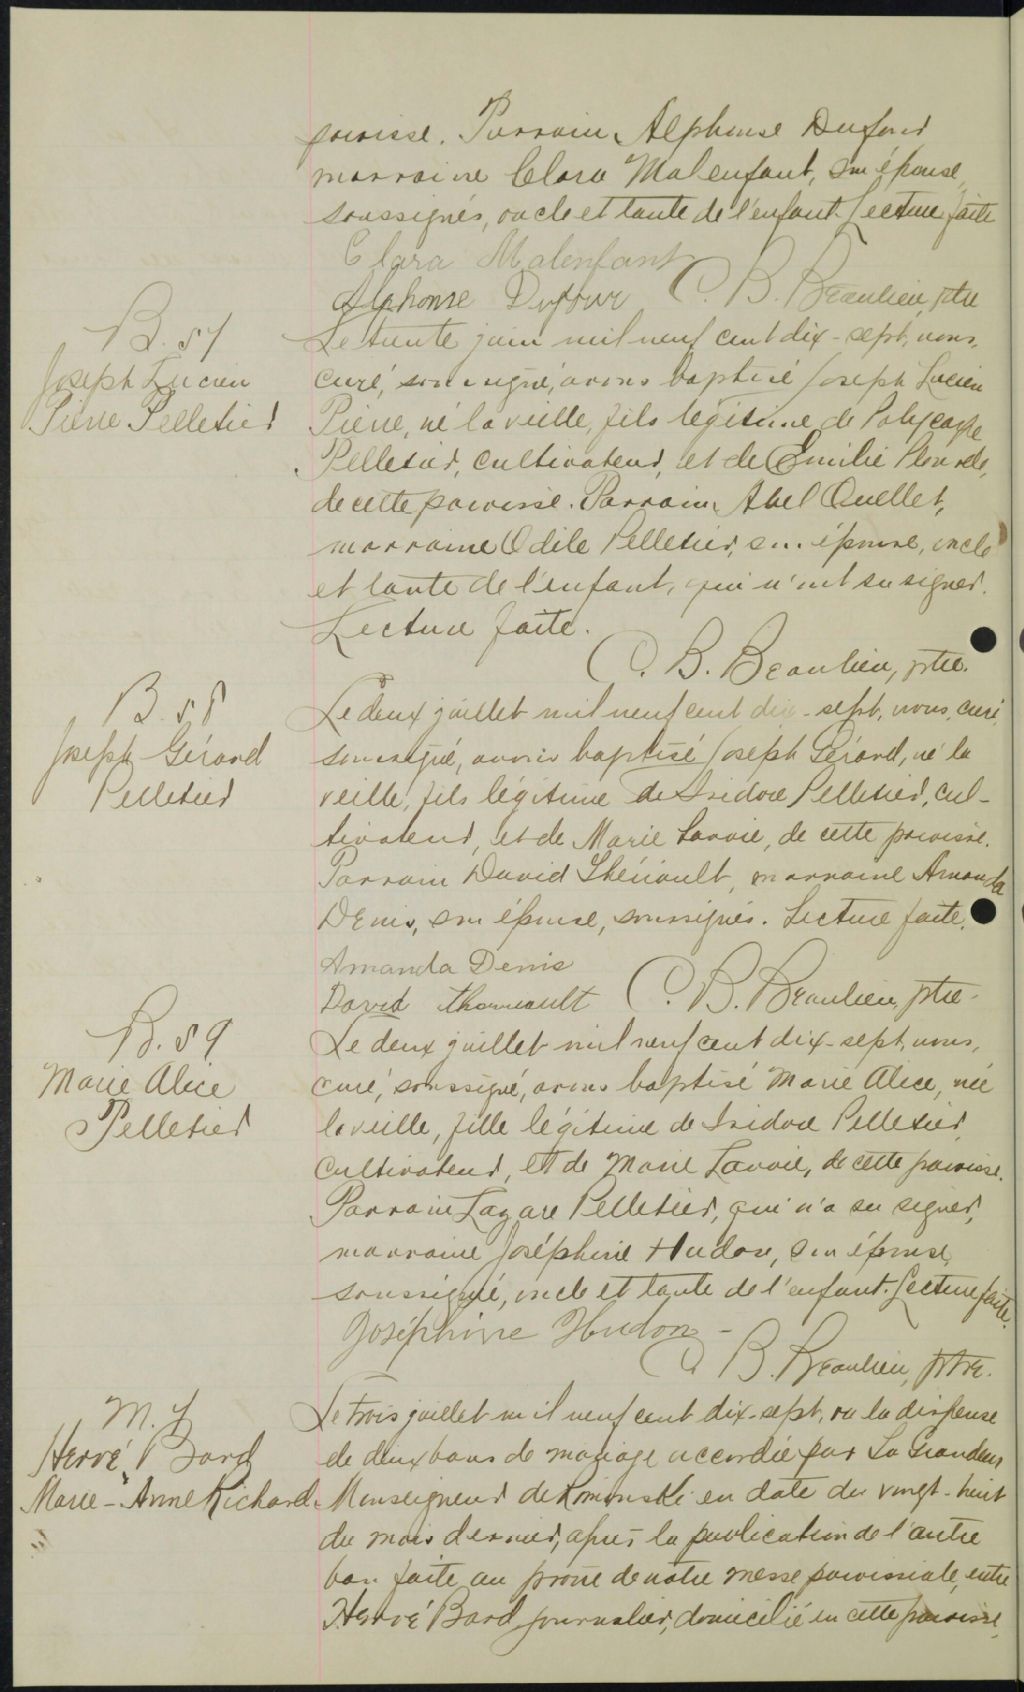 paroisse. Parrain Alphonse Dufour
marraine Clara Malenfant, son épouse,
soussignés, oncle et tante de l'enfant. Lecture faite
Clara Malenfant
Alphonse Dufour C. B. Beaulieu, ptre
B. 57
Joseph Lucien
Pierre Pelletier
Le trente juin mil neuf cent dix-sept, nous,
curé, soussigné, avons baptisé Joseph Lucien
Pierre, né la veille, fils légitime de Polycarpe
Pelletier, cultivateur, et de Emilie Plourde,
de cette paroisse. Parrain Abel Ouellet,
marraine Odile Pelletier, son épouse, oncle
et tante de l'enfant, qui n'ont su signer.
Lecture faite.
C. B. Beaulieu, ptre.
B. 58
Joseph Gérard
Pelletier
Le deux juillet mil neuf cent dix-sept, nous, curé,
soussigné, avons baptisé Joseph Gérard, né la
veille, fils légitime de Isidore Pelletier, cul-
tivateur, et de Marie Lavoie, de cette paroisse.
Parrain David Thériault, marraine Amanda
Denis, son épouse, soussignés. Lecture faite.
Amanda Denis
David Therriault C. B. Beaulieu, ptre.
B. 59
Marie Alice
Pelletier
Le deux juillet mil neuf cent dix-sept, nous,
curé, soussigné, avons baptisé Marie Alice, née
la veille, fille légitime de Isidore Pelletier,
cultivateur, et de Marie Lavoie, de cette paroisse.
Parrain Lazare Pelletier, qui n'a su signer,
marraine Joséphine Hudon, son épouse,
soussigné, oncle et tante de l'enfant. Lecture faite.
Joséphine Hudon -
C. B. Beaulieu, ptre.
M. 7
Hervé Bard
&
Marie-Anne Richard
Le trois juillet mil neuf cent dix-sept, vu la dispense
de deux bans de mariage accordée par Sa Grandeur
Monseigneur de Rimouski en date du vingt-huit
du mois dernier, après la publication de l'autre
ban faite au prône de notre messe paroissiale, entre
Hervé Bard journalier, domicilié en cette paroisse,